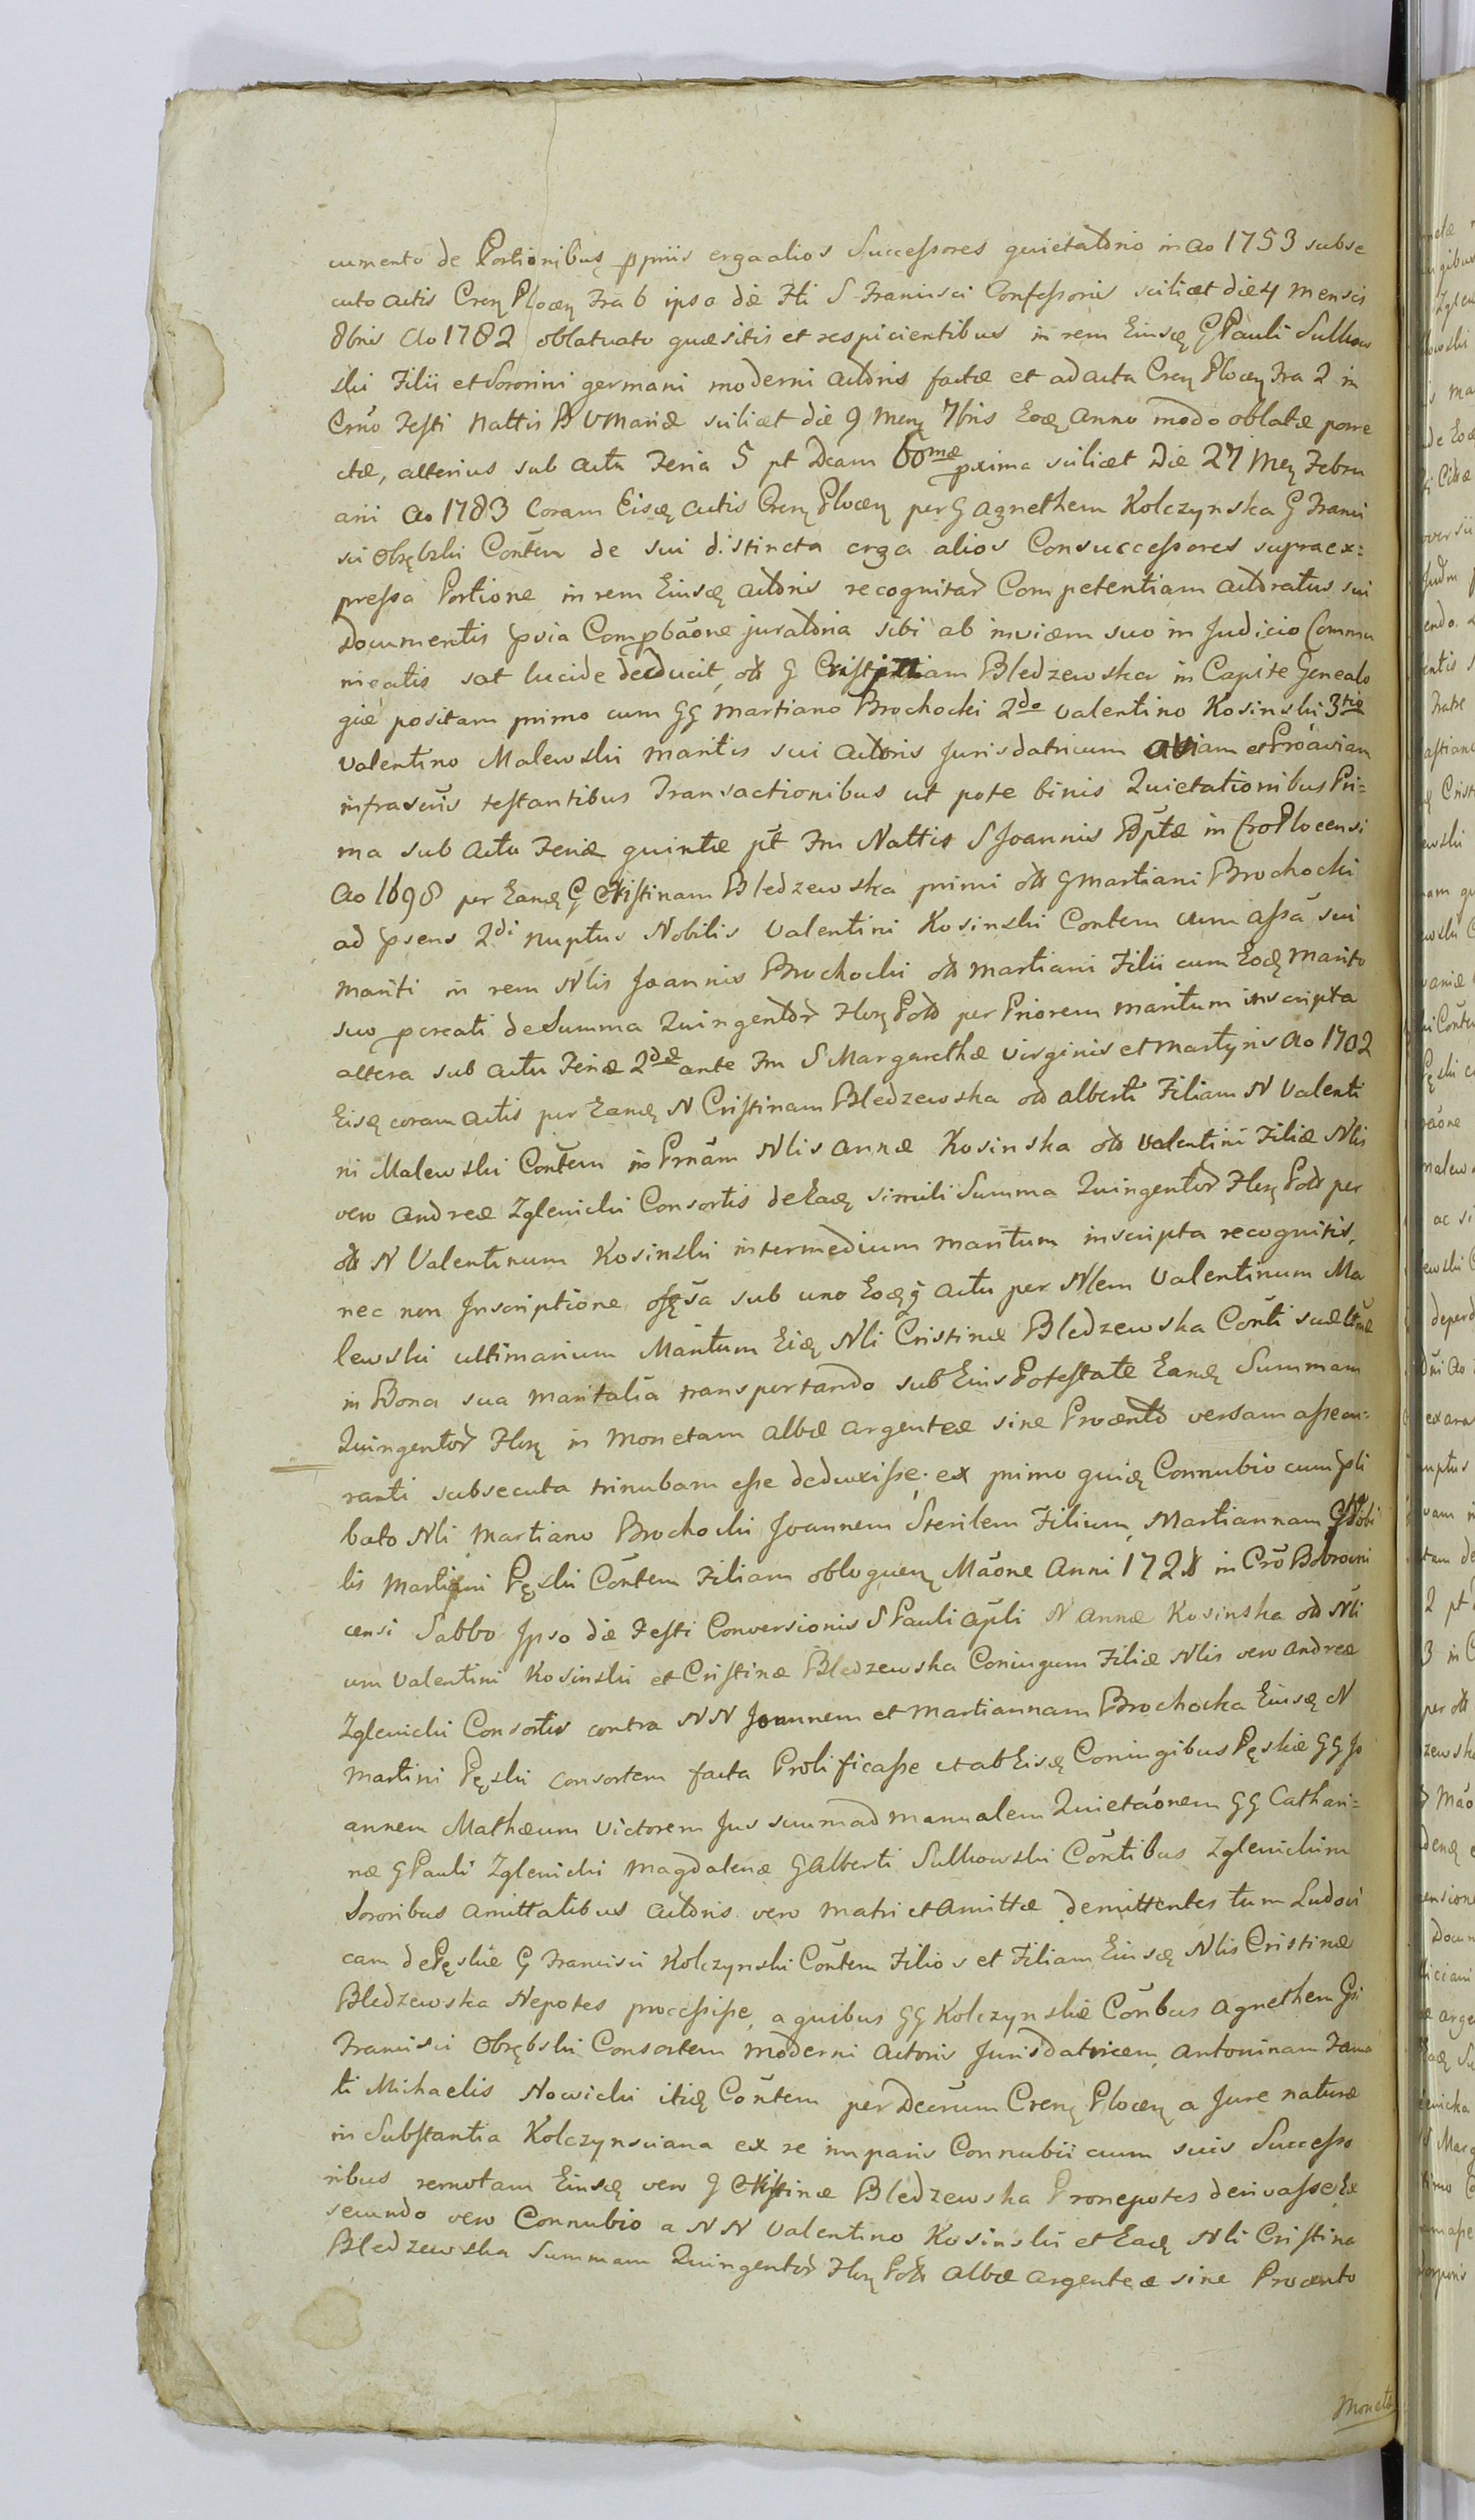 cumento de Portionibus ppriis erga alios Successores quietatorio in ao 1753 subse
cuto actis Cren Plocen Fra 6 ipso die Fti S Francisci Confessoris scilicet die 4 mensis
8bris ao 1782 oblatuato quæsitis et respicientibus in rem Eiusd G Pauli Sulkow
ski Filii et Sororini germani moderni actoris factæ et ad acta Cren Plocen Fra 2 in
Crno Festi Nattis B V Mariæ scilicet die 9 Men 7bris Eod Anno modo oblatæ porre
ctæ, alterius sub actu Feria 5 pt Dcam 60mæ pxima scilicet Die 27 Men Febru
arii ao 1783 Coram Eisd actis Cren Plocen per G Agnethem Kolczynska G Franci
sci Obrębski Contem de sui distincta erga alios Consuccessores supra ex=
pressa Portione in rem Eiusd actoris recognitar Competentiam actoratus sui
Documentis pvia Compbaone juratoria sibi ab invicem suo in Judicio Commu
nicatis sat lucide deducit, ott G Cristinam Bledzewska in Capite Genealo
giæ positam primo cum GG Martiano Brochocki 2do Valentino Kosinski 3tio
Valentino Malewski maritis sui actoris Jurisdatricum aviam et Proaviam
infrascris testantibus Transactionibus ut pote binis Quietationibus Pri=
ma sub actu Feriæ quintæ pt Fm Nattis S Joannis Bptæ in Cro Plocensi
Ao 1698 per Eand G Cristinam Bledzewska primi ott G Martiani Brochocki
ad psens 2di nuptus Nobilis Valentini Kosinski Contem cum assa sui
mariti in rem Nlis Joannis Brochocki ott Martiani Filii cum Eod Marito
suo pcreati de Summa Quingentor Flor Pol per Priorem maritum inscripta
altera sub actu Feriæ 2dæ ante Fm S Margarethæ virginis et martyris Ao 1702
Eisd coram actis per Eand N Cristinam Bledzewska ott alberti Filiam N Valenti
ni Malewski Contem in Prnam Nlis Annæ Kosinska ott Valentini Filiæ Nlis
vero Andreæ Zglenicki Consortis de Ead simili Summa Quingentor Flor Pol per
ott N Valentinum Kosinski intermedium maritum inscripta recognitis,
nec non Inscriptione sub uno Eodq actu per Nlem Valentinum Ma
lewski ultimarium Maritum Eid Nli Cristinæ Bledzewska Conti suæ
in Bona sua maritalia transportando sub Eius Potestate Eand Summam
Quingentor Flor in Monetam albæ argenteæ sine Procento versam assecu=
ranti subsecuta trinubam esse deduxisse; ex primo quid Connubio cum pli
bato Nli Martiano Brochocki Joannem Sterilem Filium, Martiannam Nobi
lis Martini Pęski Contem Filiam obloquen Maone Anni 1728 in Cro Bobrowni
censi Sabbo Ipso die Festi Conversionis S Pauli Apli N Annæ Kosinska ott Nli
um Valentini Kosinski et Cristinæ Bledzewska Coniugum Filiæ Nlis vero Andreæ
Zglenicki Consortis contra NN Joannem et Martiannam Brochocka Eiusd N
Martini Pęski consortem facta Prolificasse et ab Eisd Coniugibus Pęskie GG Jo
annem Mathæum Victorem Jus suum ad manualem Quietaonem GG Cathari=
næ G Pauli Zglenicki Magdalenæ G Alberti Sulkowski Contibus Zglenickim
Sororibus amittalibus actoris vero matri et Amittæ demittentes tum Ludovi
cam de Pęskie G Francisci Kolczynski Contem Filios et Filiam Eiusd Nlis Cristinæ
Bledzewska Nepotes processisse, a quibus GG Kolczynskie Conbus Agnethem Gsi
Francisci Obrębski Consortem moderni actoris Jurisdatricem, Antoninam Fama
ti Michaelis Nowicki itid Contem per Decrum Cren Plocen a Jure naturæ
in Substantia Kolczynsciana ex re imparis Connubii cum suis Successo
ribus remotam Eiusd vero G Cristinæ Bledzewska Pronepotes derivasse Ex
secundo vero Connubio a NN Valentino Kosinski et Ead Nli Cristina
Bledzewska Summam Quingentor Flor Pol albæ argenteæ sine Procento
Moneta